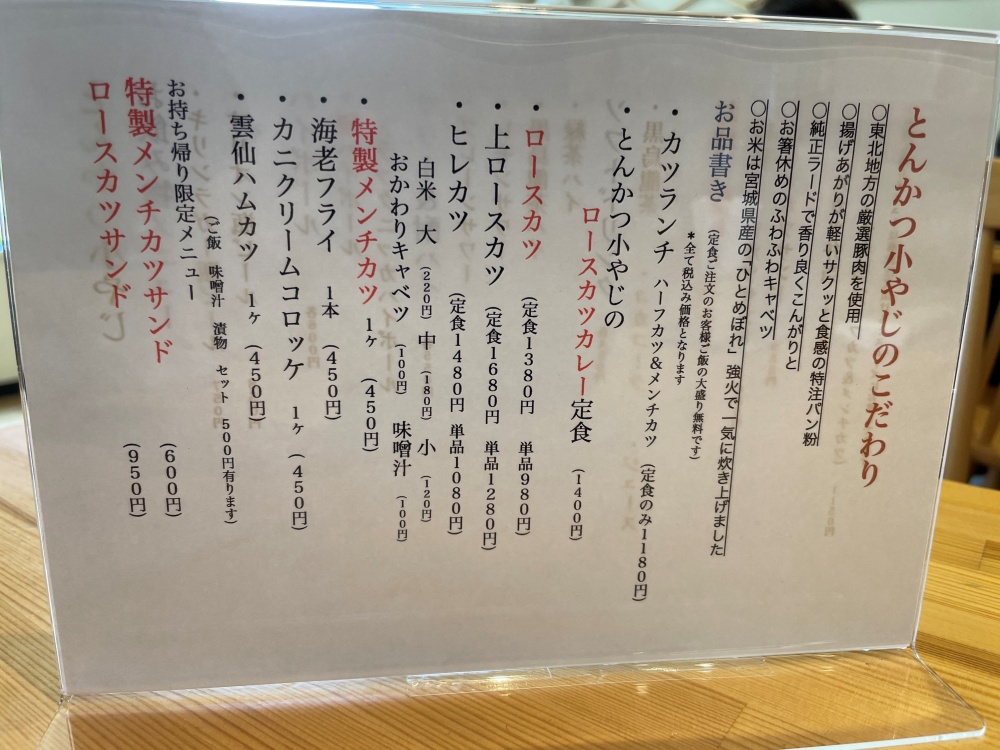 とんかつ小やじのこだわり
〇東北地方の厳選豚肉を使用
〇揚げあがりが軽いサクッと食感の特注パン粉
〇純正ラードで香り良くこんがりと
〇お箸休めのふわふわキャベツ
〇お米は宮城県産の「ひとめぼれ」強火で一気に炊き上げました
お品書き (定食ご注文のお客様ご飯の大盛り無料です)
*全て税込み価格となります
・カツランチ ハーフカツ&メンチカツ (定食のみ1180円)
・とんかつ小やじの
ロースカツカレー定食 (1400円)
・ロースカツ (定食1380円 単品980円)
・上ロースカツ (定食1680円 単品1280円)
・ヒレカツ (定食1480円 単品1080円)
白米 大 (220円) 中 (180円) 小 (120円)
おかわりキャベツ (100円) 味噌汁 (100円)
・特製メンチカツ 1ヶ (450円)
・海老フライ 1本 (450円)
・カニクリームコロッケ 1ヶ (450円)
・雲仙ハムカツ 1ヶ (450円)
(ご飯 味噌汁 漬物 セット 500円有ります)
お持ち帰り限定メニュー
特製メンチカツサンド (600円)
ロースカツサンド (950円)